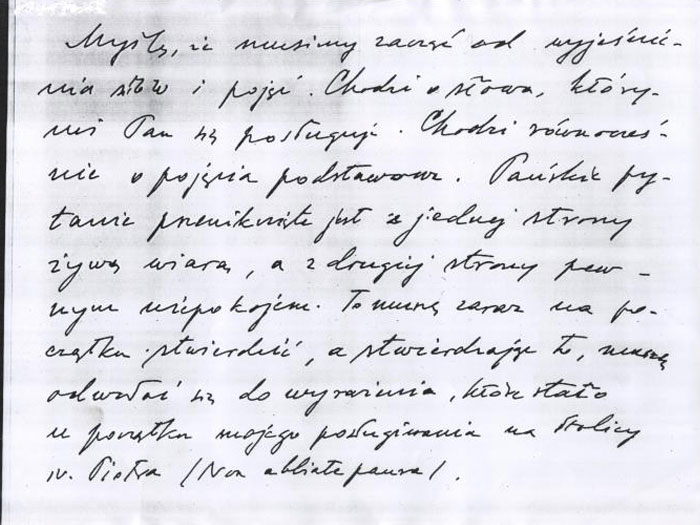 Myślę, że musimy zacząć od wyjaśnie-
nia słów i pojęć. Chodzi o słowa, który-
mi Pan się posługuje. Chodzi równocześ-
nie o pojęcia podstawowe. Pańskie py-
tanie przeniknięte jest z jednej strony
żywą wiarą, a z drugiej strony pew-
nym niepokojem. To muszę zaraz na po-
czątku stwierdzić, a stwierdzając to, muszę
odwołać się do wyrażenia, które stało
u początku mojego posługiwania na stolicy
św. Piotra (Non abbiate paura).